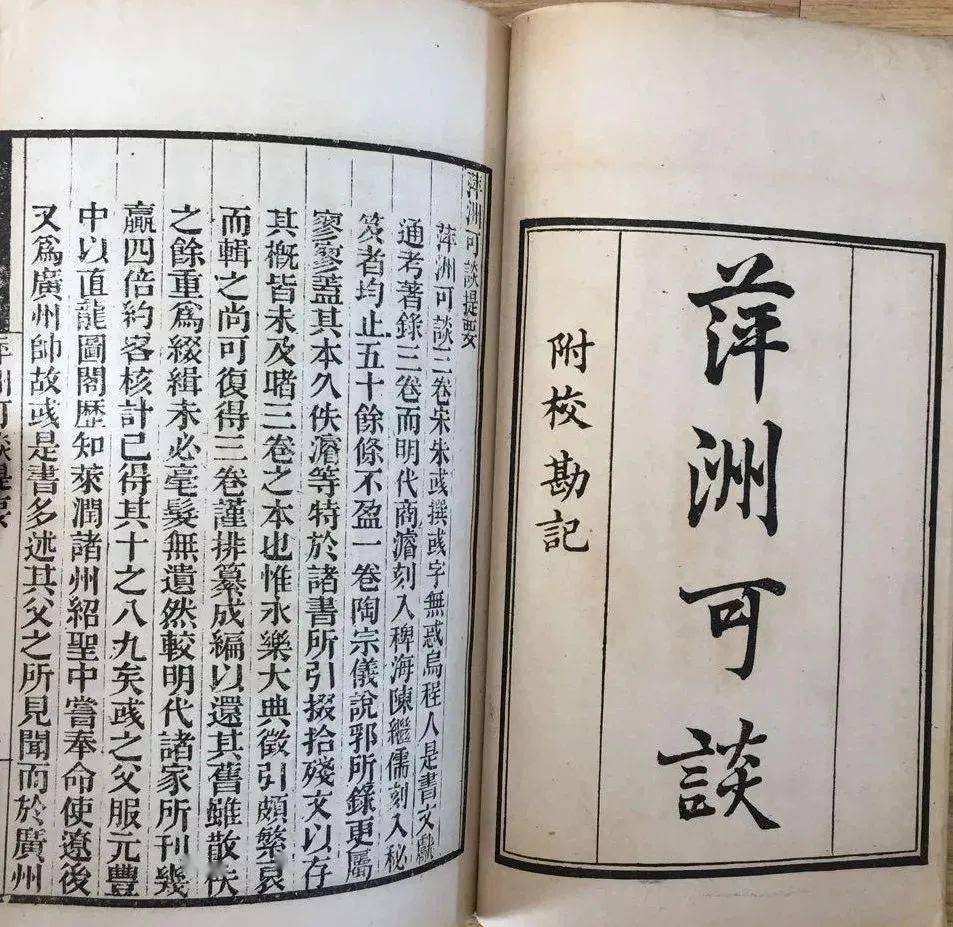 萍洲可談
附校勘記
萍洲可談提要
萍洲可談三卷宋朱彧撰彧字無惑烏程人是書文獻
通考著錄三卷而明代商濬刻入稗海陳繼儒刻入秘
笈者均止五十餘條不盈一卷陶宗儀說郛所錄更屬
寥寥蓋其本久佚濬等特於諸書所引掇拾殘文以存
其槪皆未及睹三卷之本也惟永樂大典徵引頗繁裒
而輯之尚可復得三卷謹排纂成編以還其舊雖散佚
之餘重爲綴緝未必毫髮無遺然較明代諸家所刊幾
贏四倍約畧核計已得其十之八九矣彧之父服元豐
中以直龍圖閣歷知萊潤諸州紹聖中嘗奉命使遼後
又爲廣州帥故彧是書多述其父之所見聞而於廣州